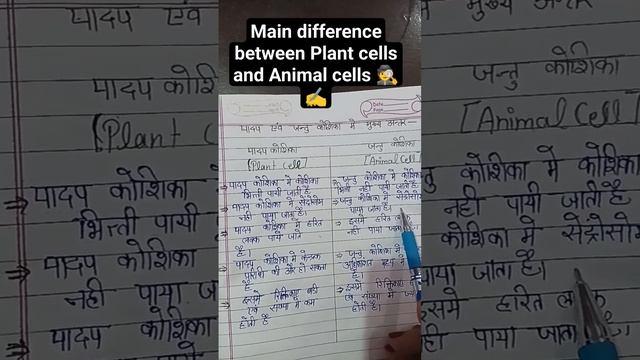 Main difference
between Plant cells
and Animal cells 🕵️
✍️
पादप एवं जन्तु कोशिका मे मुख्य अन्तर—
पादप कोशिका
[Plant Cell]
→ पादप कोशिका मे कोशिका
भित्ती पायी जाती है
→ पादप कोशिका मे सेंट्रोसोम
नही पाया जाता है।
→ पादप कोशिका मे हरित
लवक पाये जाते
है।
→ पादप कोशिका मे केन्द्रक
परिधी की ओर हो सकता
है।
→ इसमे रिक्तिका बडी
एवं संख्या मे कम
होती है
जन्तु कोशिका
[Animal Cell]
→ जन्तु कोशिका मे कोशिका
भित्ती नही पायी जाती है
→ जन्तु कोशिका मे सेंट्रोसोम
पाया जाता है।
→ इसमे हरित
नही पाया जाता
→ जन्तु कोशिका मे
→ इसमे रिक्तिका
एवं संख्या मे
होती है।